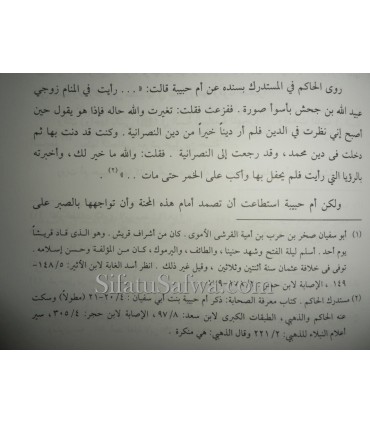 روى الحاكم في المستدرك بسنده عن أم حبيبة قالت: «... رأيت في المنام زوجي
عبيد الله بن جحش بأسوأ صورة. ففزعت فقلت: تغيرت والله حاله فإذا هو يقول حين
أصبح إني نظرت في الدين فلم أر ديناً خيراً من دين النصرانية. وكنت قد دنت بها ثم
دخلت فى دين محمد، وقد رجعت إلى النصرانية. فقلت: والله ما خير لك، وأخبرته
بالرؤيا التي رأيت فلم يحفل بها وأكب على الخمر حتى مات ..» (٢).
ولكن أم حبيبة استطاعت أن تصمد أمام هذه المحنة وأن تواجهها بالصبر على
(١) أبو سفيان صخر بن حرب بن أمية القرشى الأموى. كان من أشراف قريش. وهو الذى قاد قريشاً
يوم أحد. أسلم ليلة الفتح وشهد حنينا، والطائف، واليرموك، كان من المؤلفة وحسن إسلامه.
توفى فى خلافة عثمان سنة اثنتين وثلاثين، وقيل غير ذلك. انظر أسد الغابة لابن الأثير: ١٤٨/٥-
١٤٩، الإصابة لابن حجر:
SilatuSalwa.com
(٢) مستدرك الحاكم. كتاب معرفة الصحابة: ذكر أم حبيبة بنت أبي سفيان: ٢٠/٤-٢١ (مطولاً) وسكت
عنه الحاكم والذهبي، الطبقات الكبرى لابن سعد: ٩٧/٨، الإصابة لابن حجر: ٣٠٥/٤، سير
أعلام النبلاء للذهبي: ٢٢١/٢ وقال الذهبي: هي منكرة.